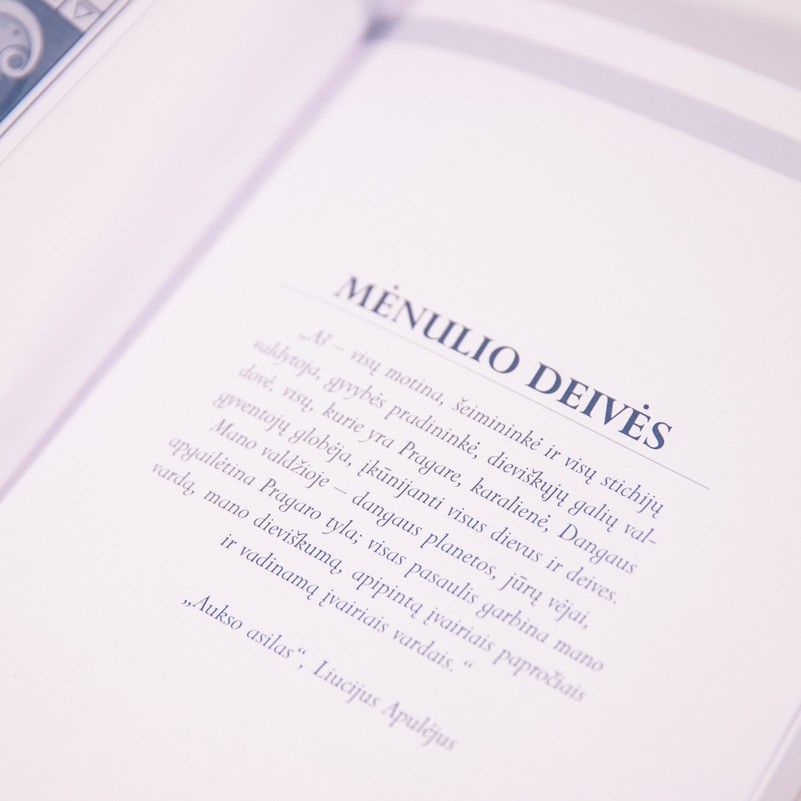 MĖNULIO DEIVĖS
„Aš – visų motina, šeimininkė ir visų stichijų
valdytoja, gyvybės pradininkė, dieviškųjų galių val-
dovė, visų, kurie yra Pragare, karalienė, Dangaus
gyventojų globėja, įkūnijanti visus dievus ir deives.
Mano valdžioje – dangaus planetos, jūrų vėjai,
apgailėtina Pragaro tyla; visas pasaulis garbina mano
vardą, mano dieviškumą, apipintą įvairiais papročiais
ir vadinamą įvairiais vardais.“
„Aukso asilas“, Liucijus Apulėjus